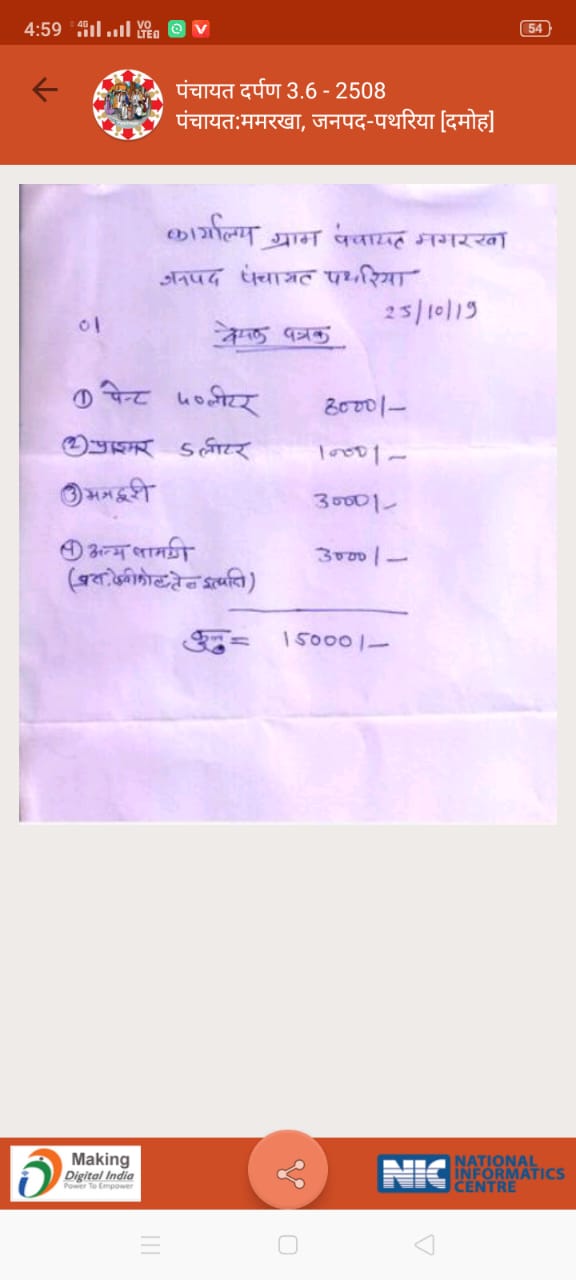 4:59 4G VO LTE 54
पंचायत दर्पण 3.6 - 2508
पंचायत:ममरखा, जनपद-पथरिया [दमोह]
कार्यालय ग्राम पंचायत ममरखा
जनपद पंचायत पथरिया
25/10/19
01
पत्रक
① पेन्ट ५० लीटर 8000/-
② प्राइमर 5 लीटर 1000/-
③ मजदूरी 3000/-
④ अन्य सामग्री 3000/-
(ब्रस, इत्यादि)
कुल = 15000/-
Making
Digital India
Power To Empower
NIC NATIONAL
INFORMATICS
CENTRE